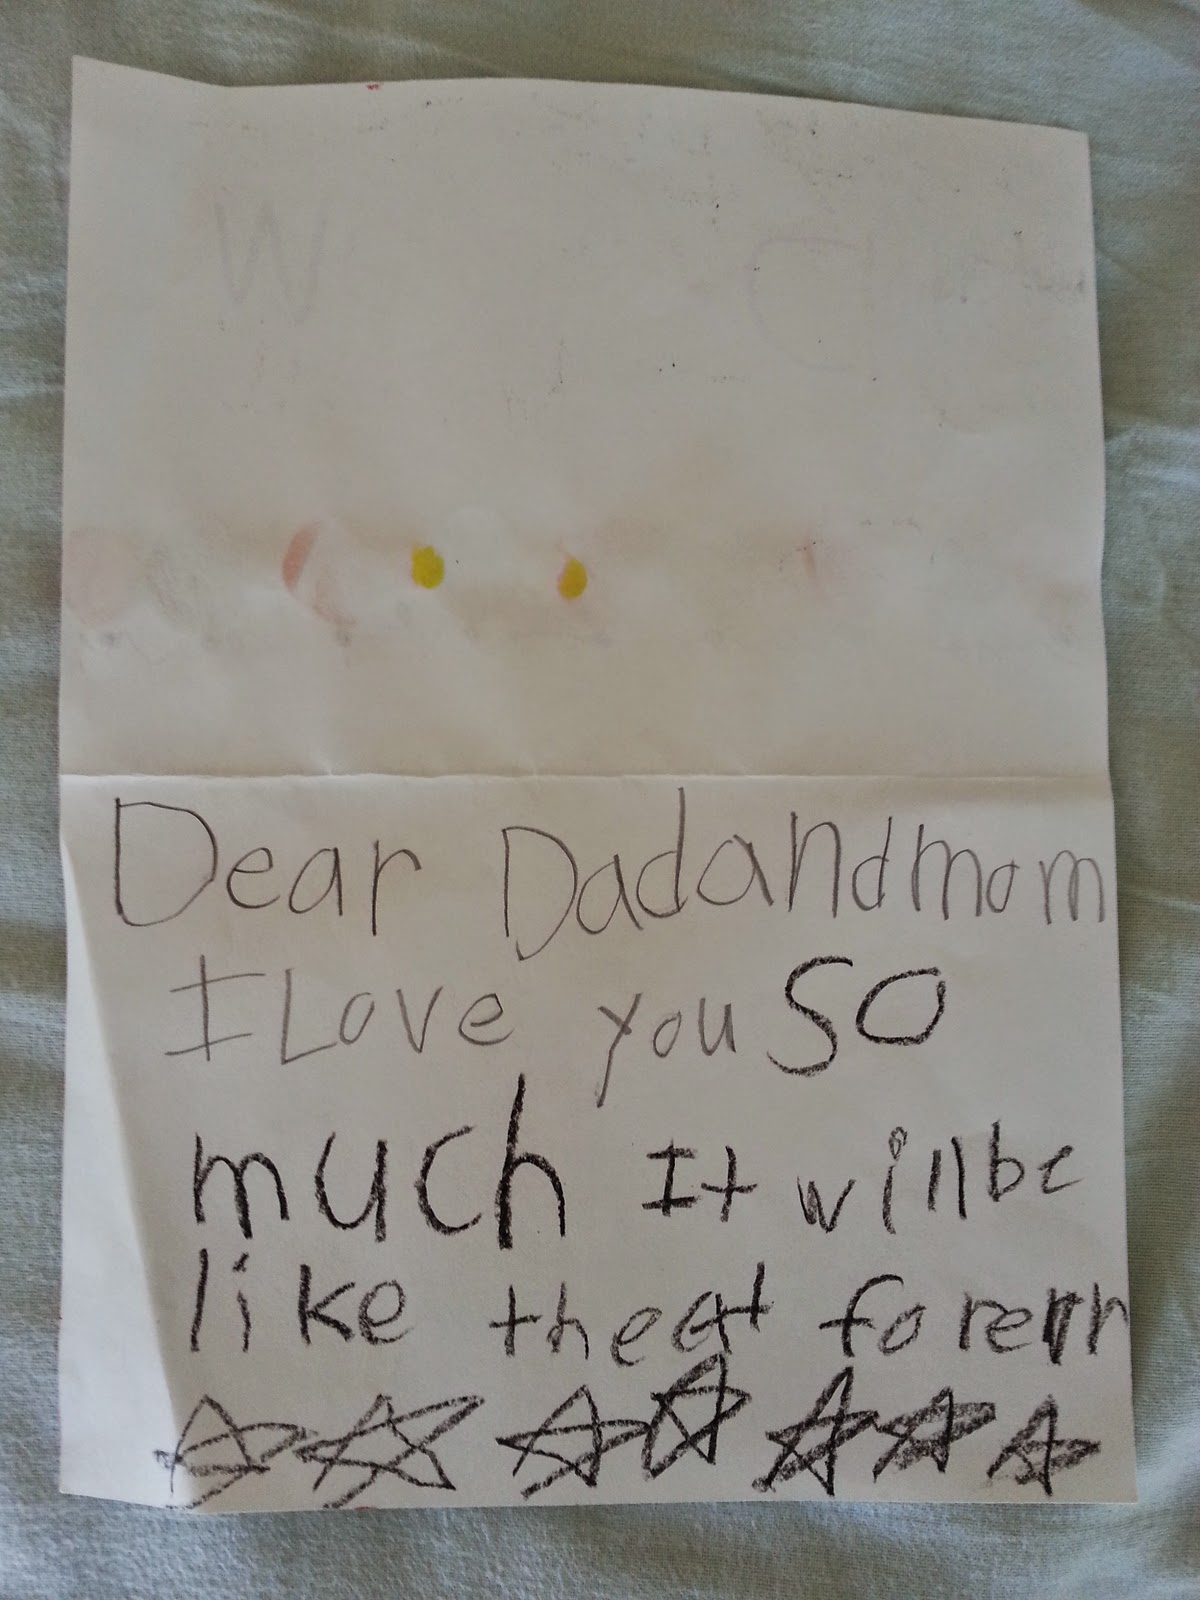 Dear Dad and mom
I Love you SO
much It will be
like theat forerr